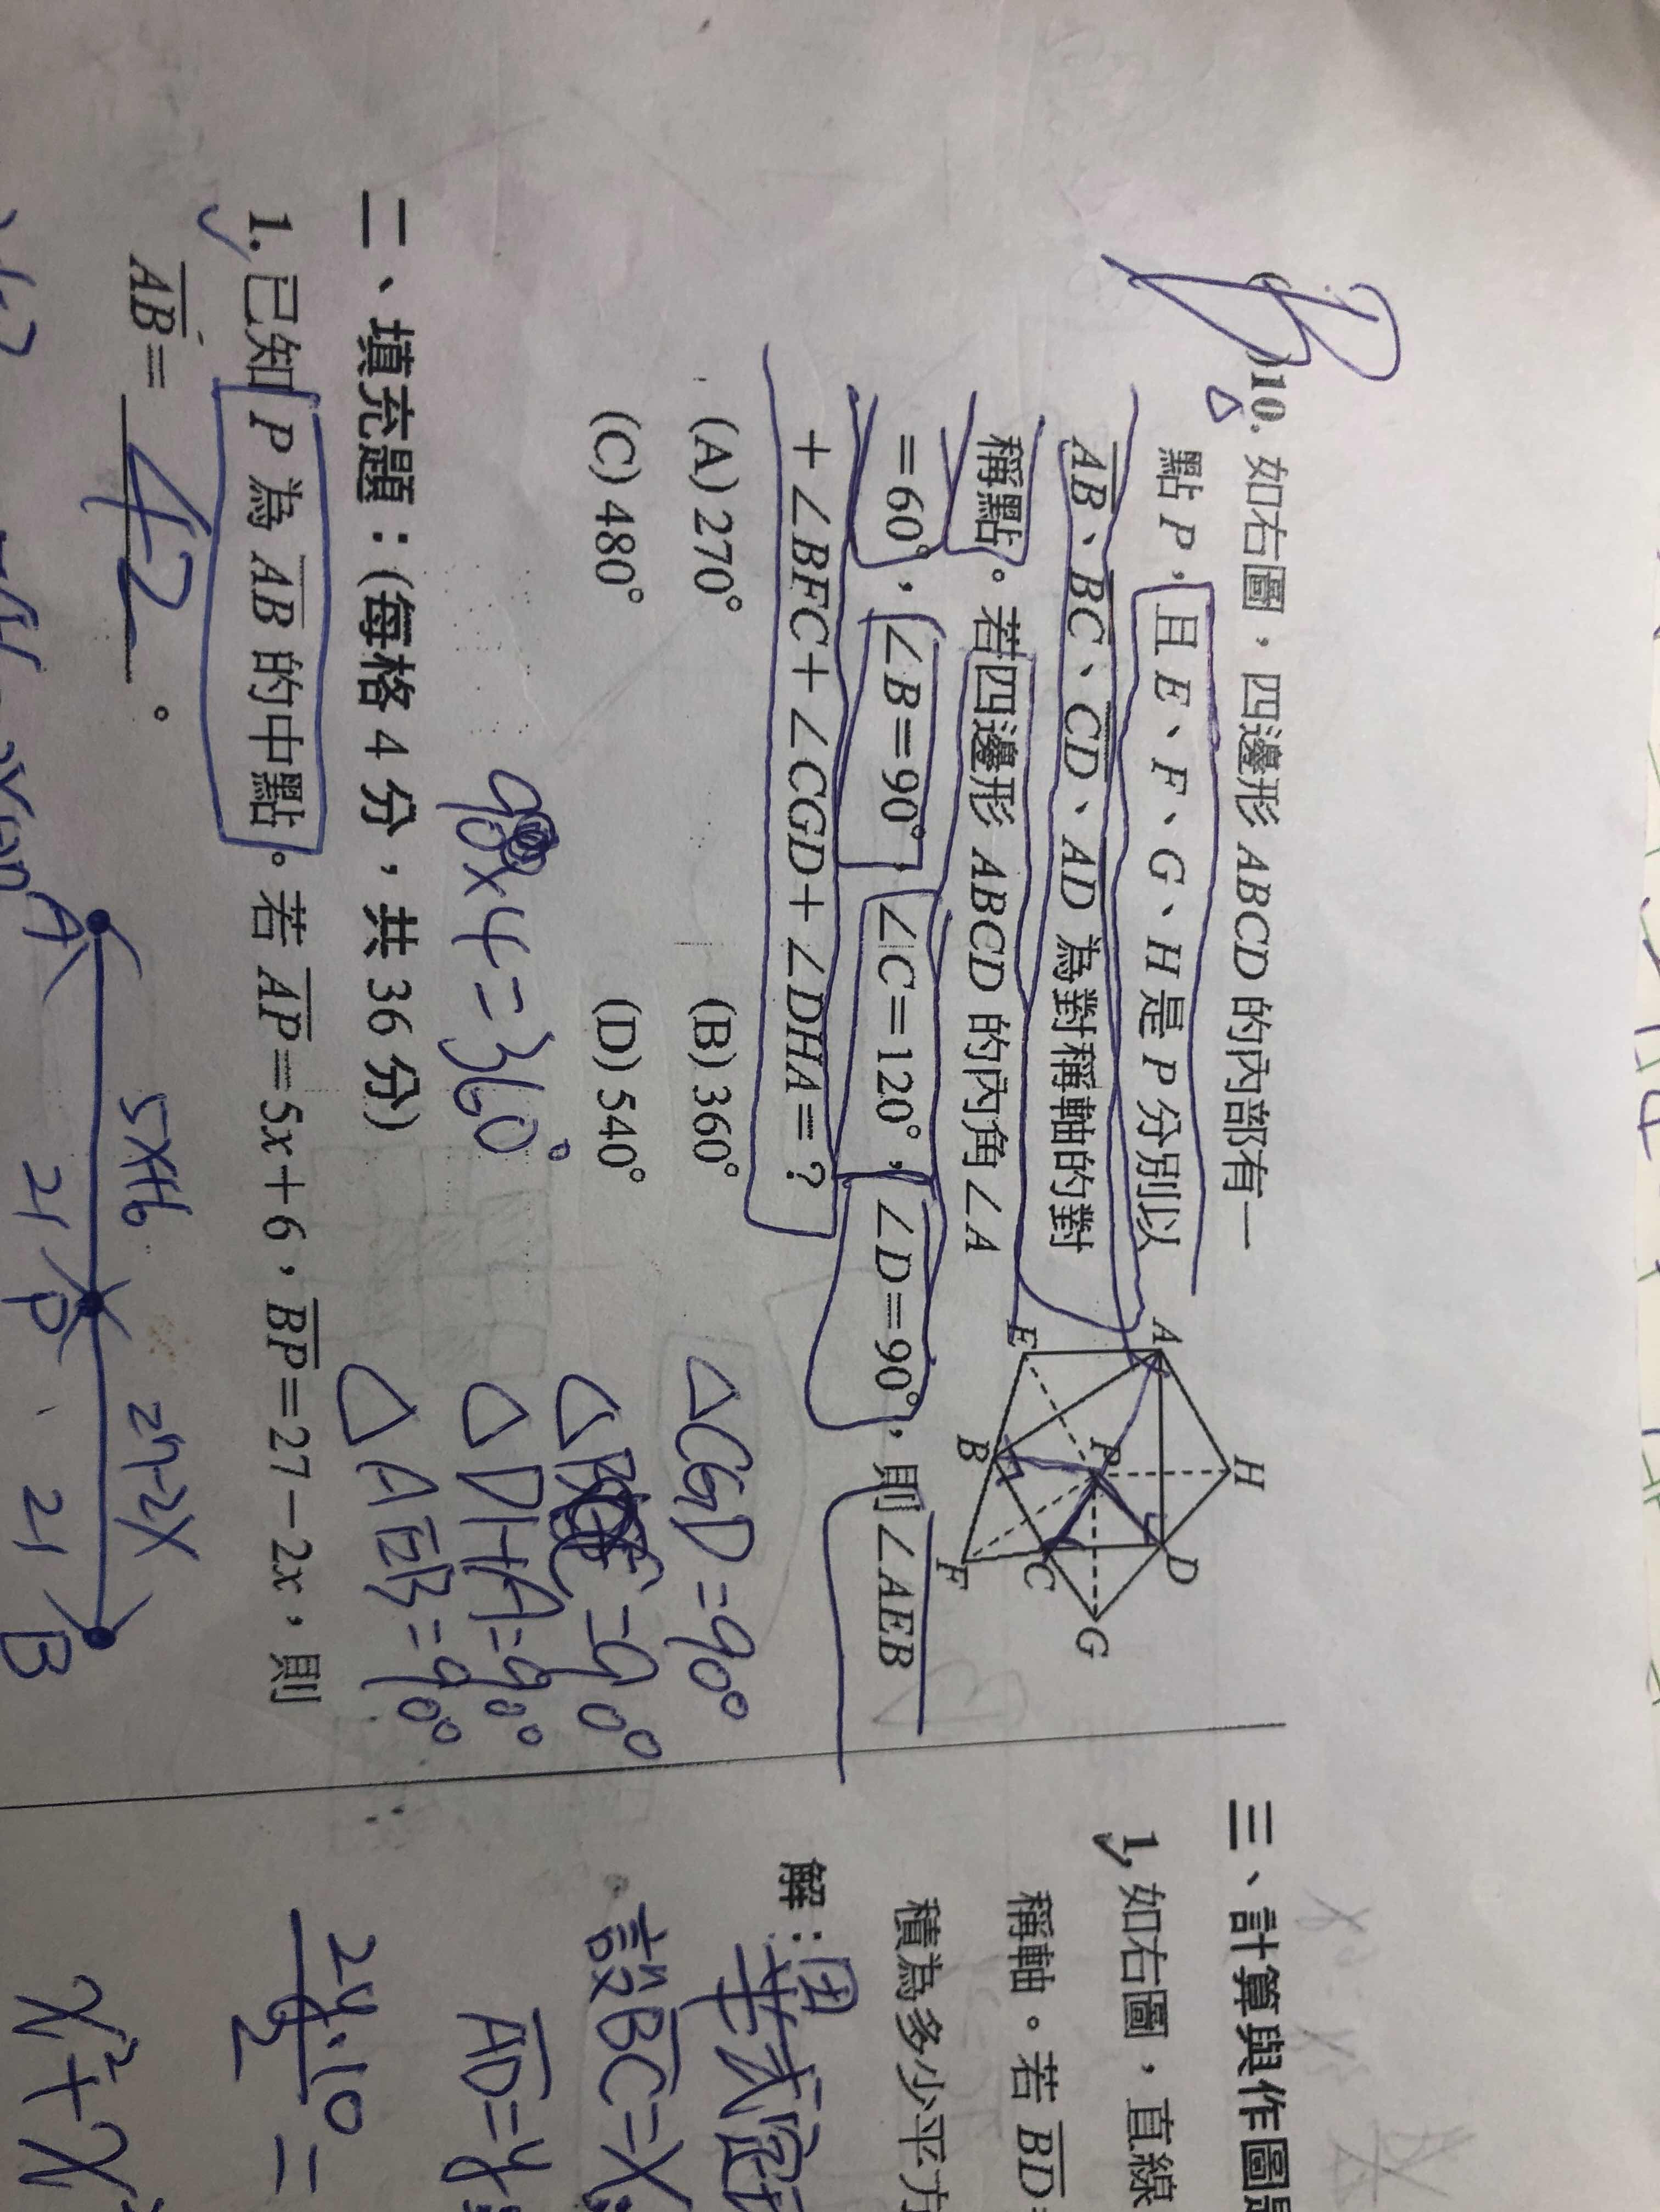 B
( )10. 如右圖，四邊形 ABCD 的內部有一
點 P，且 E、F、G、H 是 P 分別以
AB、BC、CD、AD 為對稱軸的對
稱點。若四邊形 ABCD 的內角 ∠A
=60°，∠B=90°，∠C=120°，∠D=90°，則∠AEB
+∠BFC+∠CGD+∠DHA=？
(A) 270° (B) 360°
(C) 480° (D) 540°
A
H
E
P
D
B
G
C
F
△CGD=90°
=90°
△DHA=90°
△AEB=90°
90×4=360°
二、填充題：(每格 4 分，共 36 分)
1. 已知 P 為 AB 的中點。若 AP=5x+6，BP=27-2x，則
AB= 42 。
5x+6
27-2x
A
P
B
21
21
三、計算與作圖
1. 如右圖，直線
稱軸。若 BD
積為多少平方
解：
設BC=x
AD=y
24·10
2
=
x²+x